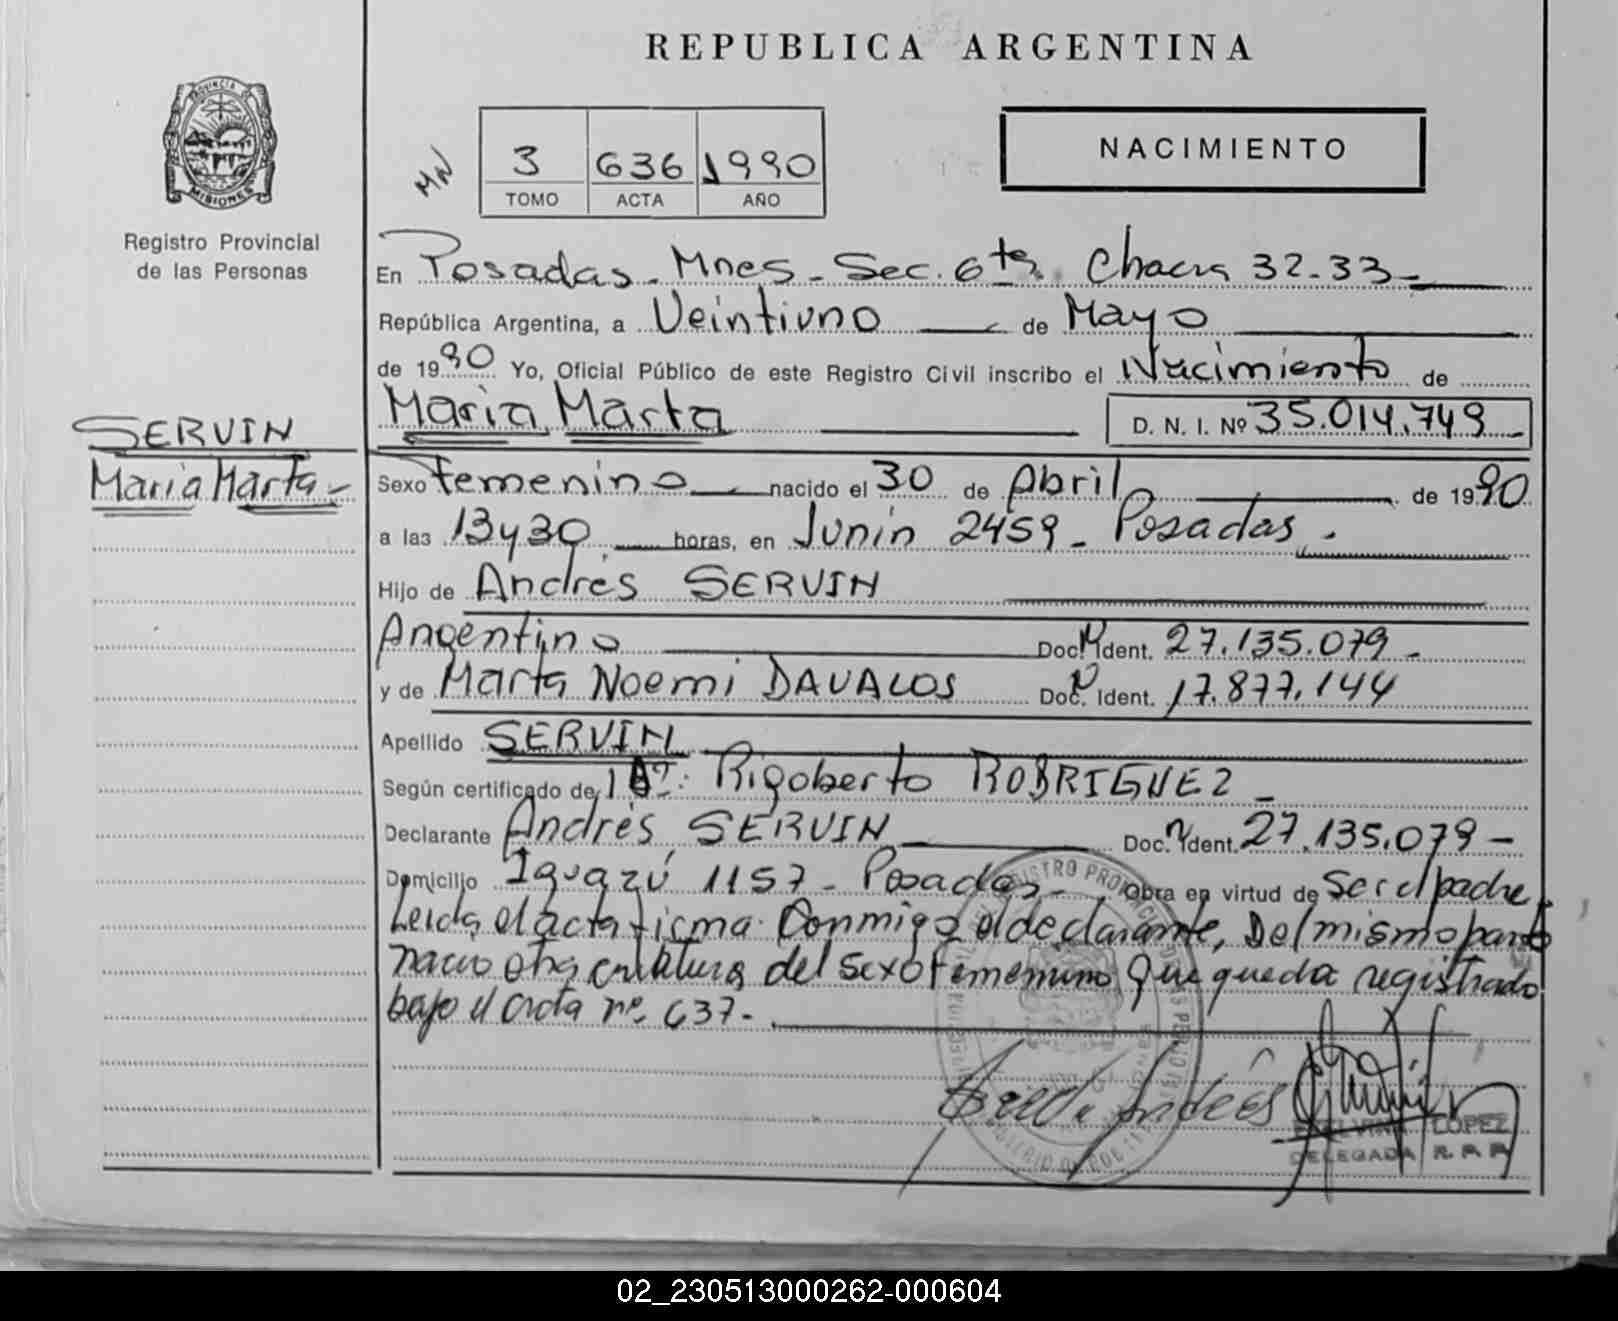 REPUBLICA ARGENTINA
PROVINCIA DE
MISIONES
Registro Provincial
de las Personas
MN
3 636 1990
TOMO ACTA AÑO
NACIMIENTO
En Posadas - Mnes - Sec. 6ta. Chacra 32-33-
República Argentina, a Veintiuno de Mayo
de 1990 Yo, Oficial Público de este Registro Civil inscribo el Nacimiento de
Maria Marta D. N. I. Nº 35.014.749
SERVIN
Maria Marta -
Sexo Femenino nacido el 30 de Abril de 1990
a las 13 y 30 horas, en Junin 2459 - Posadas.
Hijo de Andrés SERVIN
Argentino Doc. N Ident. 27.135.079 -
y de Marta Noemi DAVALOS Doc. N Ident. 17.877.144
Apellido SERVIN
Según certificado de Rigoberto RODRIGUEZ -
Declarante Andrés SERVIN Doc. N Ident. 27.135.079 -
Domicilio Iguazú 1157 - Posadas - Obra en virtud de Ser el padre
Leida el acta firma Conmigo el declarante, Del mismo parto
nacio otra criatura del sexo femenino que queda registrado
bajo el acta nº 637 -
LOPEZ
DELEGADA R. P. P.
02_230513000262-000604